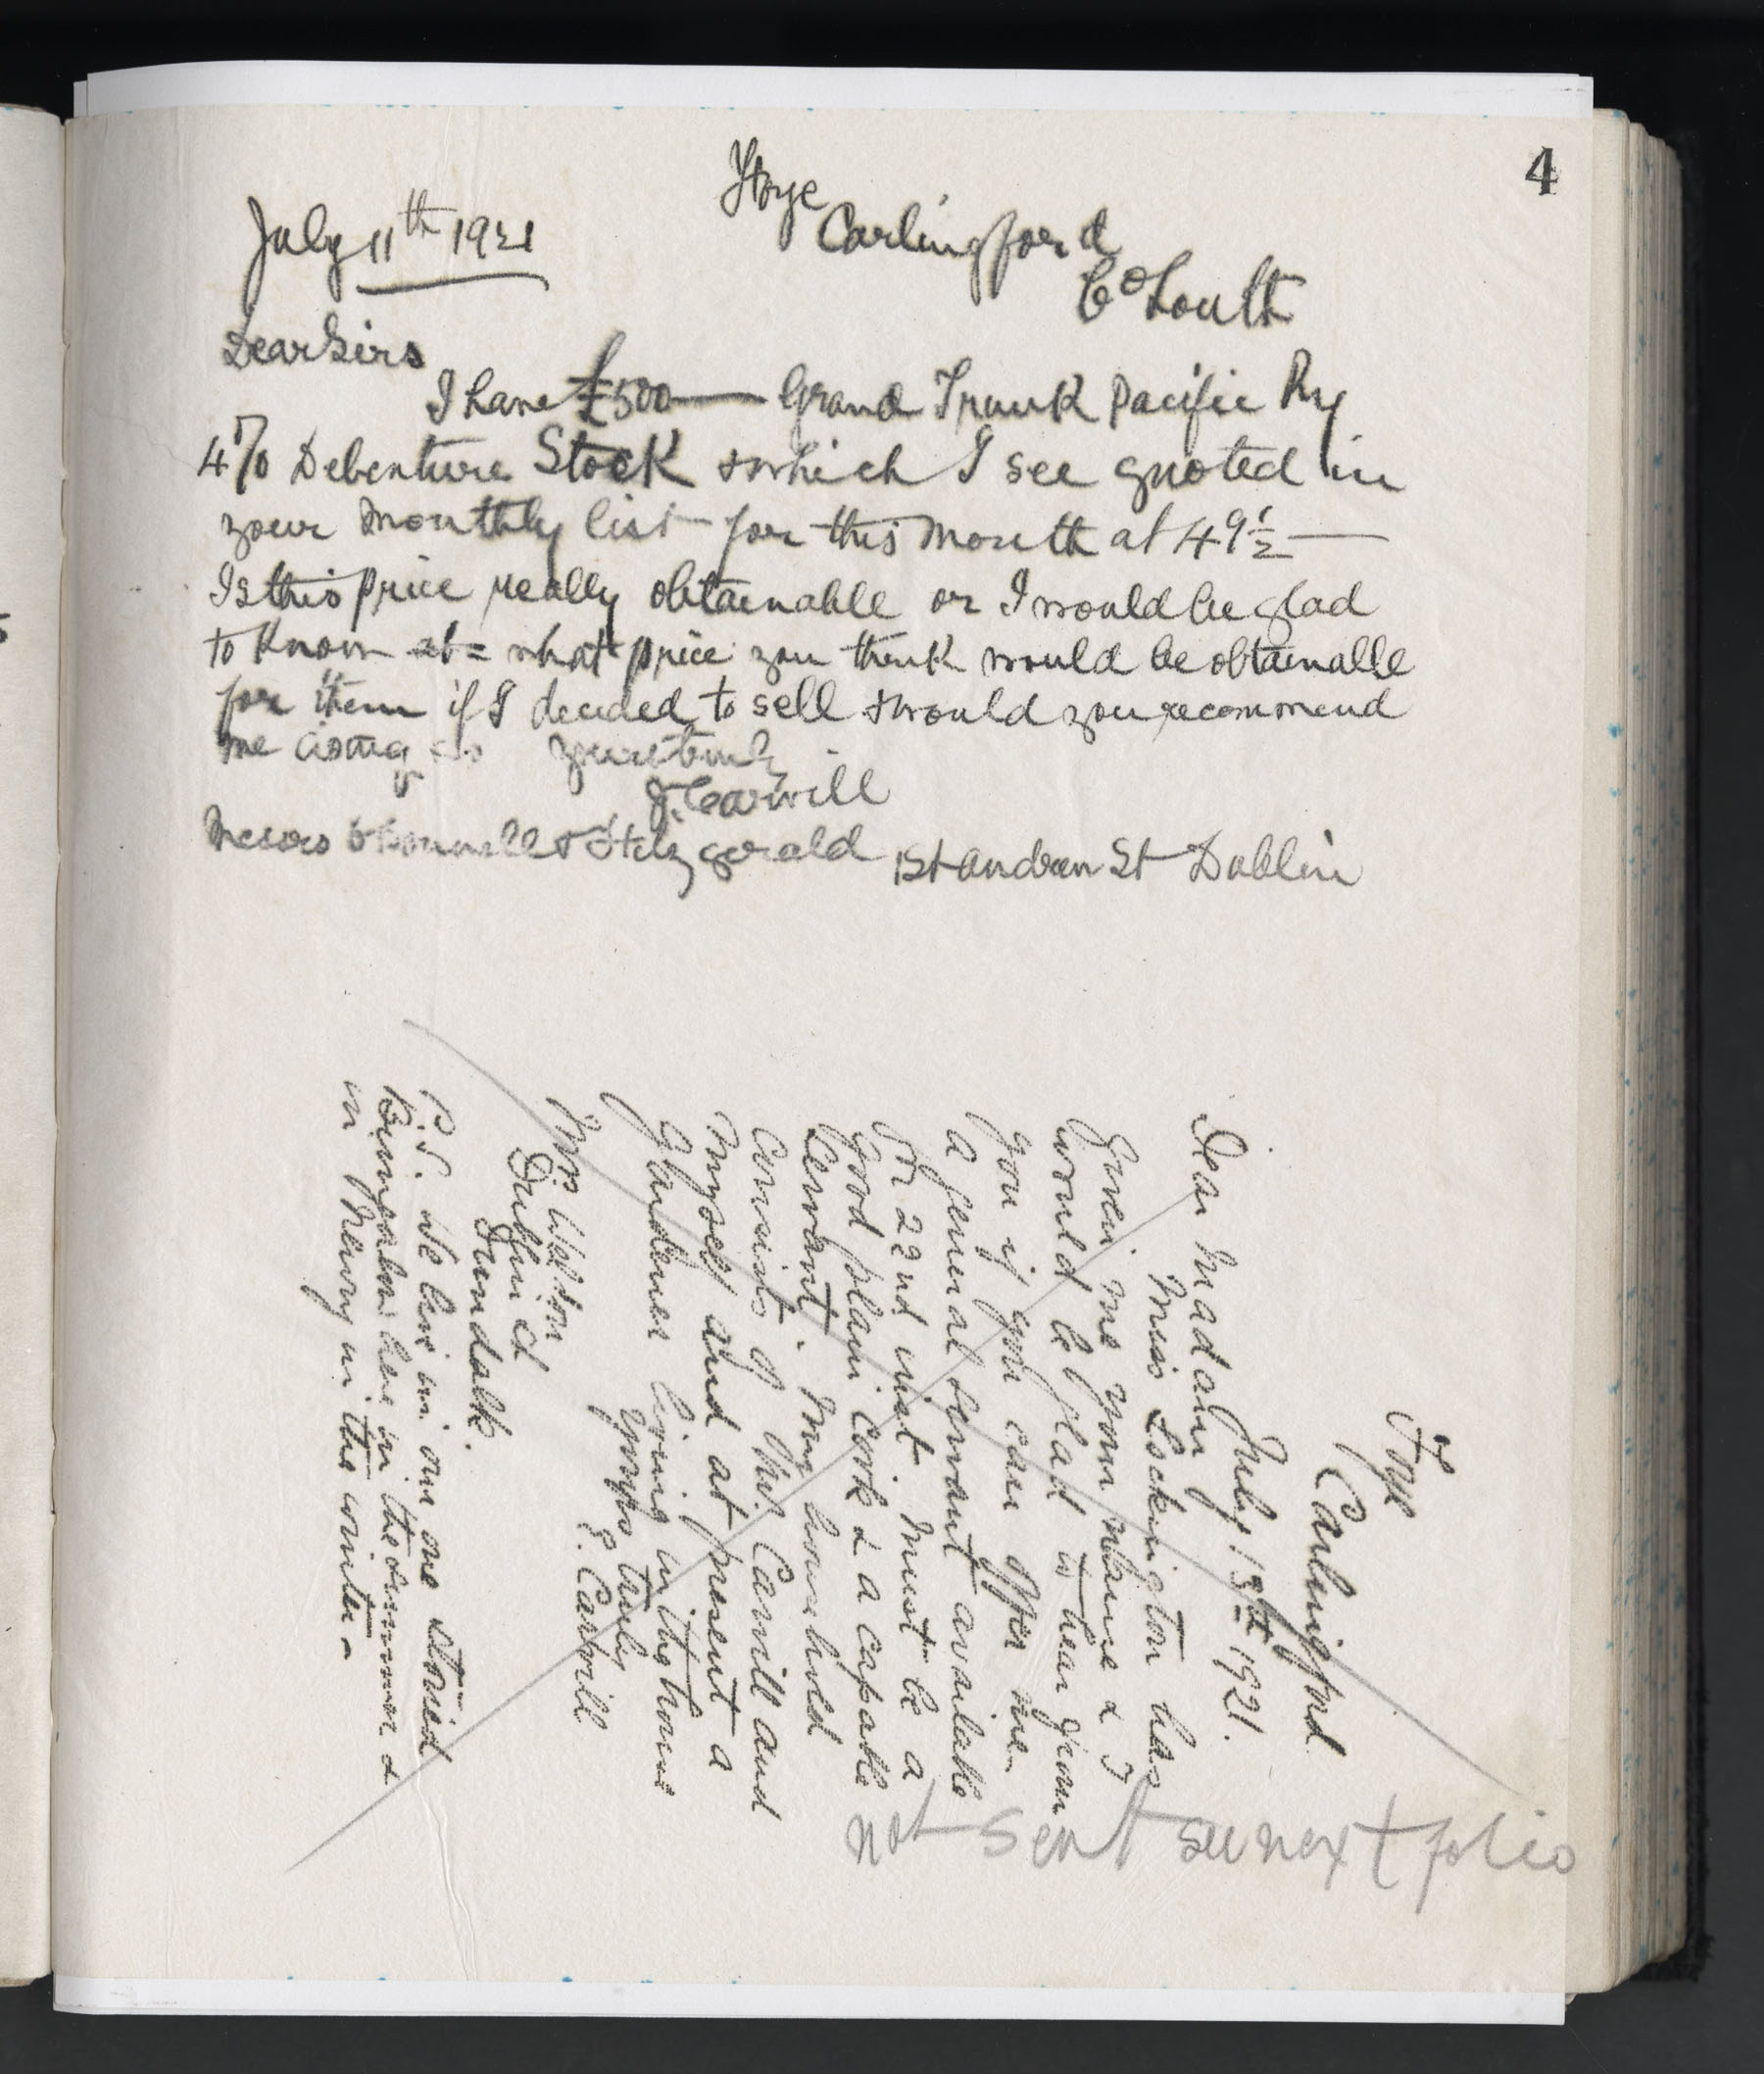 4
Foye
Carlingford
Co Louth
July 11th 1921
Dear Sirs
I have £500 — Grand Trunk Pacific Ry
4% Debenture Stock which I see quoted in
your monthly list for this month at 49½ —
Is this price really obtainable or I would be glad
to know at = what price you think would be obtainable
for them if I decided to sell & would you recommend
me doing so yours truly
J. Carvill
Messrs O'Connell & Fitzgerald 1 St Andrew St Dublin
Foye
Carlingford.
July 13th 1921.
Dear Madam
Miss Lockington has
given me your name & I
would be glad to hear from
you if you can offer me
a general servant available
for 22nd inst. Must be a
good plain cook & a capable
servant. My household
consists of Mr. Carvill and
myself and at present a
gardener living in the house
yours truly
E. Carvill
Mrs Watson
Dublin St
Dundalk.
P.S. We live in our one storied
Bungalow here in the summer &
in Newry in the winter -
not sent see next folio